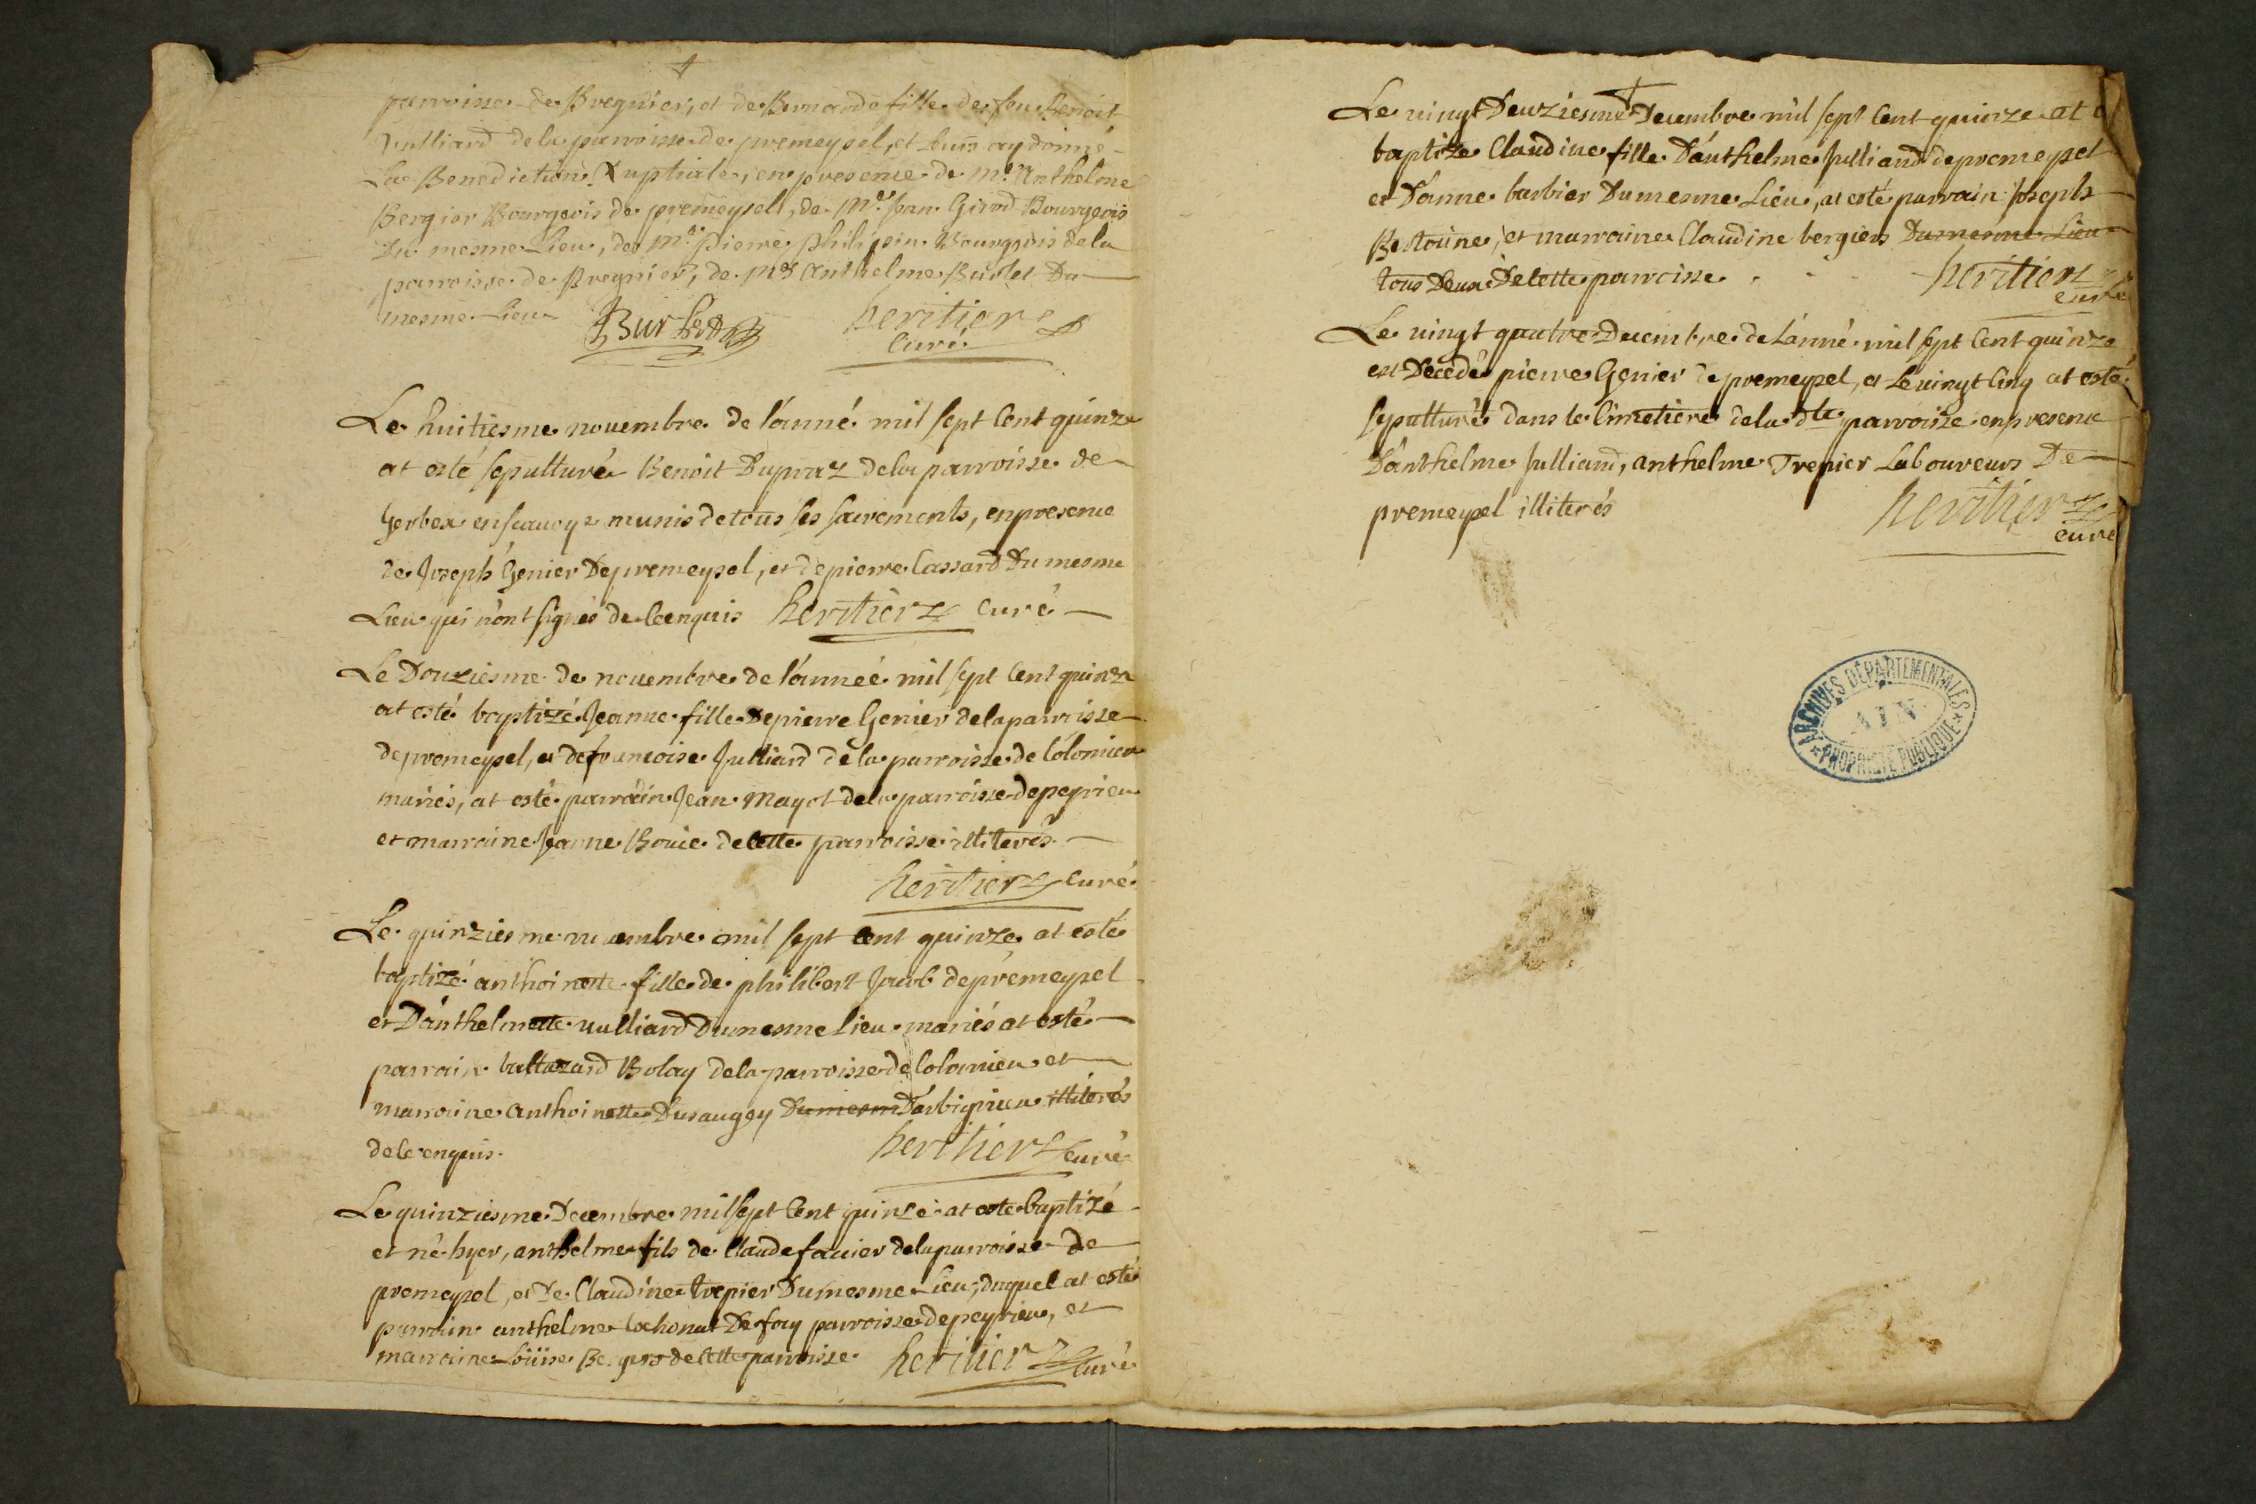 parroisse de Bregnier, et de Bernarde fille de feu Benoit
Vulliard de la parroisse de premeysel, et leurs ay donné
La Benediction Nuptiale, en presence de mr. Anthelme
Bergier Bourgeois de premeysell, de Mr. Jean Girod Bourgeois
Du mesme Lieu, de mr. pierre philipin Bourgeois de la
parroisse de Bregnier, de Mr Anthelme Burlet Du
mesme Lieu Burlet heritier
Curé
Le huitiesme nouembre de l'anné mil sept Cent quinze
at esté sepulturé Benoit Dupraz de la parroisse de
Gerbex en sauoye munis de tous ses sacrements, en presence
de Joseph Genier De premeysel, et de pierre Cassard Du mesme
Lieu qui n'ont signés de Ce enquis heritier Curé
Le Douziesme de nouembre de l'année mil sept Cent quinze
at esté baptizé Jeanne fille De pierre Genier de la parroisse
de premeysel, et de francoise Julliard de la parroisse de Colomieu
mariés, at esté parrain Jean Magot de la parroisse de peyrieu
et marraine Jeanne Bouie de Cette parroisse illiterés
heritier curé
Le quinziesme nouembre mil sept cent quinze at esté
baptizé anthoinette fille de philibert Jacob de premeysel
et D'anthelmette vulliard Du mesme Lieu mariés at esté
parrain baltazard Bolay de la parroisse de Colomieu et
marraine anthoinette Dusaugey Du mesm D'arbignieu illiterés
de Ce enquis. heritier curé
Le quinziesme Decembre mil sept Cent quinze at este baptizé
et né hyer, anthelme fils de Claude fauier de la parroisse de
premeysel, et De Claudine trepier Du mesme Lieu, duquel at esté
parrain anthelme Cochonat De fay parroisse de peyrieu, et
marraine Loüise de Cette parroisse heritier curé
Le vingt Deuziesme Decembre mil sept Cent quinze at
baptize Claudine fille D'anthelme Julliand de premeysel
et D'anne barbier Du mesme Lieu, at esté parrain Joseph
et marraine Claudine bergiers Du mesme Lieu
tous Deux De Cette parroisse heritier
curé
Le vingt quatre Decembre de L'anné mil sept Cent quinze
est Decedé pierre Genier de premeysel, et Le vingt Cinq at esté
sepulturé dans le Cimetiere de la dte parroisse en presence
D'anthelme Julliand, anthelme Trepier Laboureurs De
premeysel illiterés heritier
curé
ARCHIVES DÉPARTEMENTALES
AIN
PROPRIÉTÉ PUBLIQUE